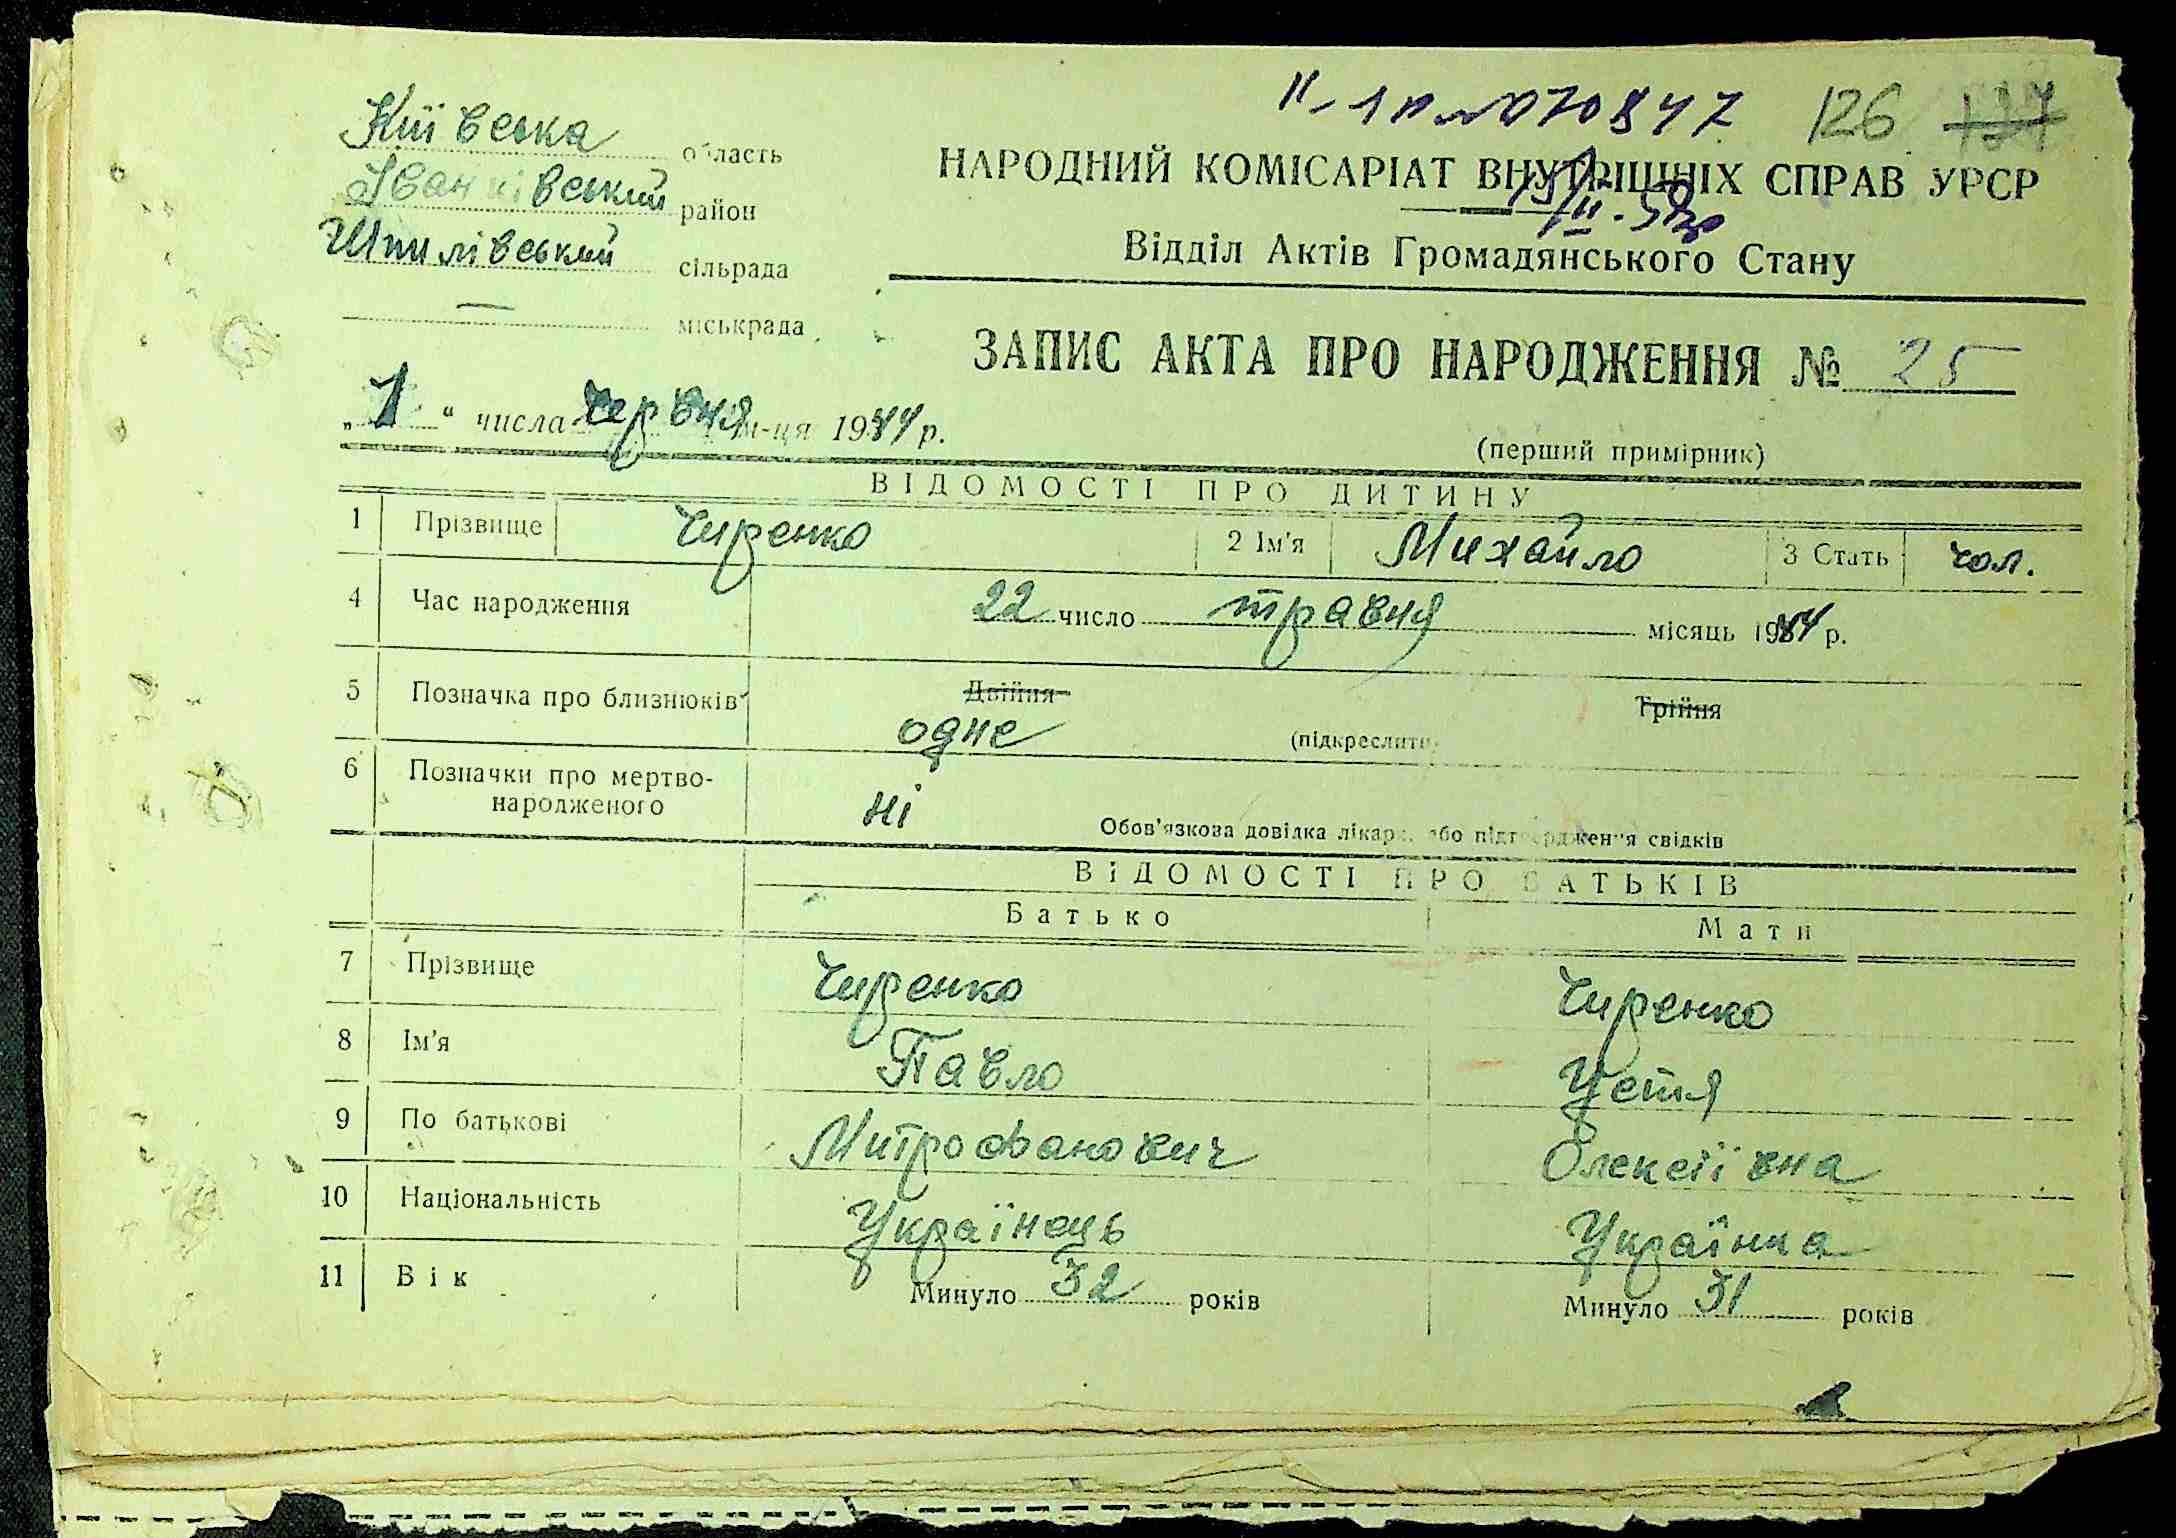 126 137
Київська область
Іванківський район
Шпилівський сільрада
— міськрада
НАРОДНИЙ КОМІСАРІАТ ВНУТРІШНІХ СПРАВ УРСР
Відділ Актів Громадянського Стану
ЗАПИС АКТА ПРО НАРОДЖЕННЯ № 25
„1“ числа червня м-ця 1944 р.
(перший примірник)
ВІДОМОСТІ ПРО ДИТИНУ
1 Прізвище Чиренко 2 Ім'я Михайло 3 Стать чол.
4 Час народження 22 число травня місяць 1944 р.
5 Позначка про близнюків Двійня Трійня
одне (підкреслити)
6 Позначки про мертво-
народженого ні Обов'язкова довідка лікаря або підтвердження свідків
ВІДОМОСТІ ПРО БАТЬКІВ
Батько Мати
7 Прізвище Чиренко Чиренко
8 Ім'я Павло Устя
9 По батькові Митрофанович Олексіївна
10 Національність Українець Українка
11 Вік Минуло 32 років Минуло 31 років